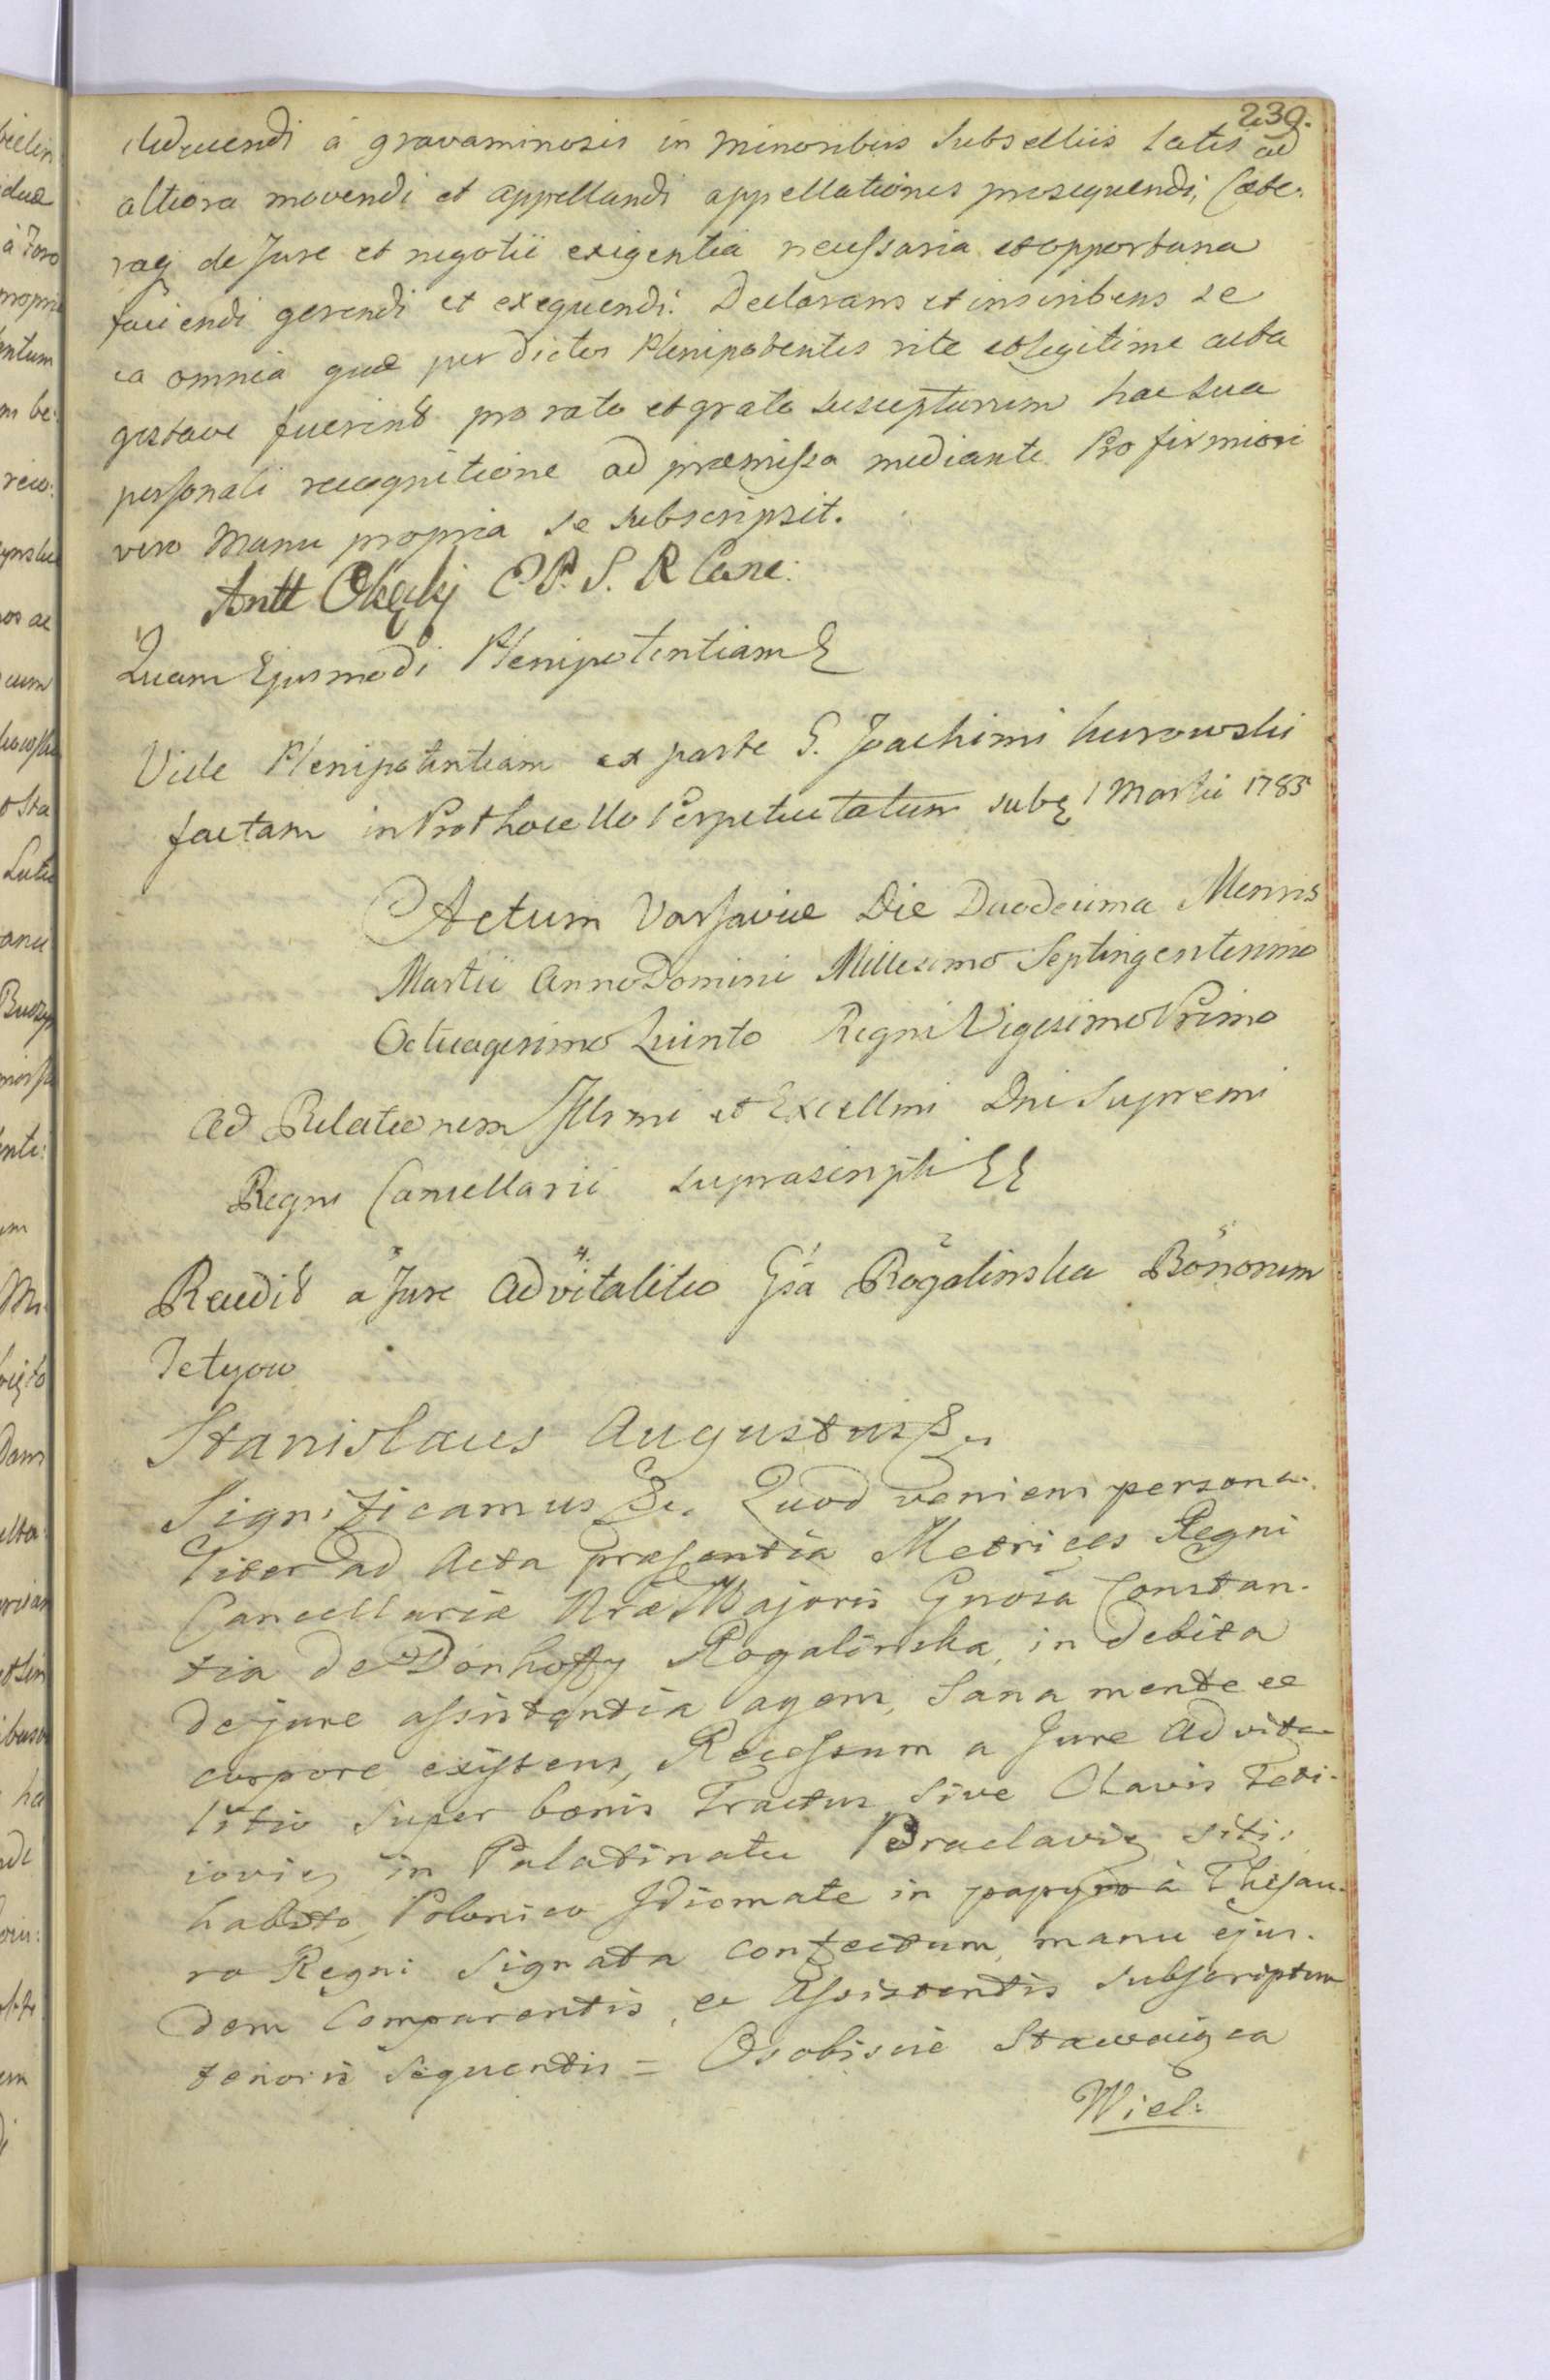 239.
deducendi à gravaminosis in Minoribus Subselliis Latis ad
altiora movendi et appellandi appellationes prosequendi, Caete-
raq de Jure et negotii exigentia necessaria et opportuna
faciendi gerendi et exequendi. Declarans et inscribens se
ea omnia quæ per dictos Plenipotentes rite et legitime acta
gestave fuerint pro rato et grato suscepturum hac sua
personali recognitione ad præmissa mediante Pro firmiori
vero Manu propria se subscripsit.
Antt Okęcki E. P. S. R Canc:
Quam Ejusmodi Plenipotentiam
Vide Plenipotentiam ex parte G. Joachimi Kurowski
factam in Prothocollo Perpetuitatum sub 1 Martii 1785
Actum Varsaviæ Die Duodecima Mensis
Martii Anno Domini Millesimo Septingentesimo
Octuagesimo Quinto Regni Vigesimo Primo
Ad Relationem Illsmi et Excellmi Dni Supremi
Regni Cancellarii suprascripti
Recedit a Jure Advitalitio Gsa Rogalinska Bonorum
Tetyow
Stanislaus Augustus &c
Significamus &c. Quod veniens persona-
liter ad Acta præsentia Metrices Regni
Cancellariæ Nræ Majoris Gnosa Constan-
tia de Donhoffy Rogalinska, in debita
de jure assistentia agens, sana mente et
corpore existens, Recessum a Jure Advita-
litio super bonis Tractus sive Clavis Teti-
iovien in Palatinatu Braclavien siti:
habito, Polonico Idiomate in papyro à Thesau-
ro Regni signata confectum, manu ejus-
dem Comparentis, et Assistentis subscriptum
tenoris sequentis = Osobiscie Stawaiąca
Wiel: